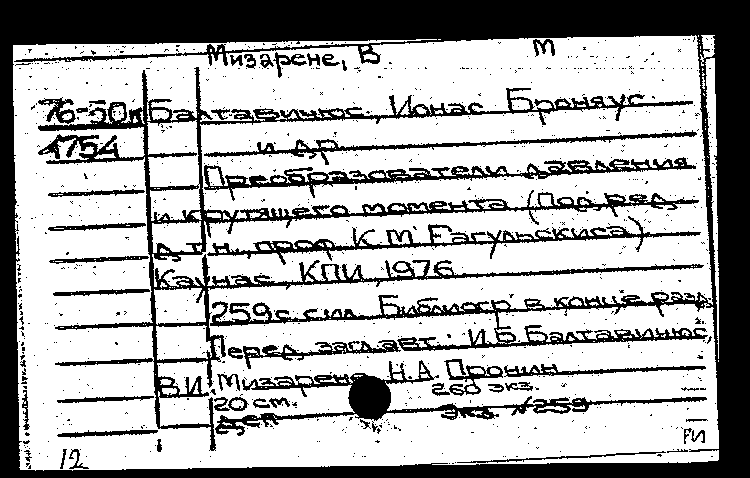 Мизарене, В м
76-50к Балтавинюс, Ионас Броняус
4754 и др
Преобразователи давления
и крутящего момента (Под ред.
д.т.н., проф. К.М Рагульскиса)
Каунас, КПИ, 1976
259 с. с ил. Библиогр. в конце разд.
Перед загл. авт.: И.Б. Балтавинюс,
В.И. Мизарене, Н.А. Пронин
20 ст. 260 экз.
Деп Экз. №259
РИ
12